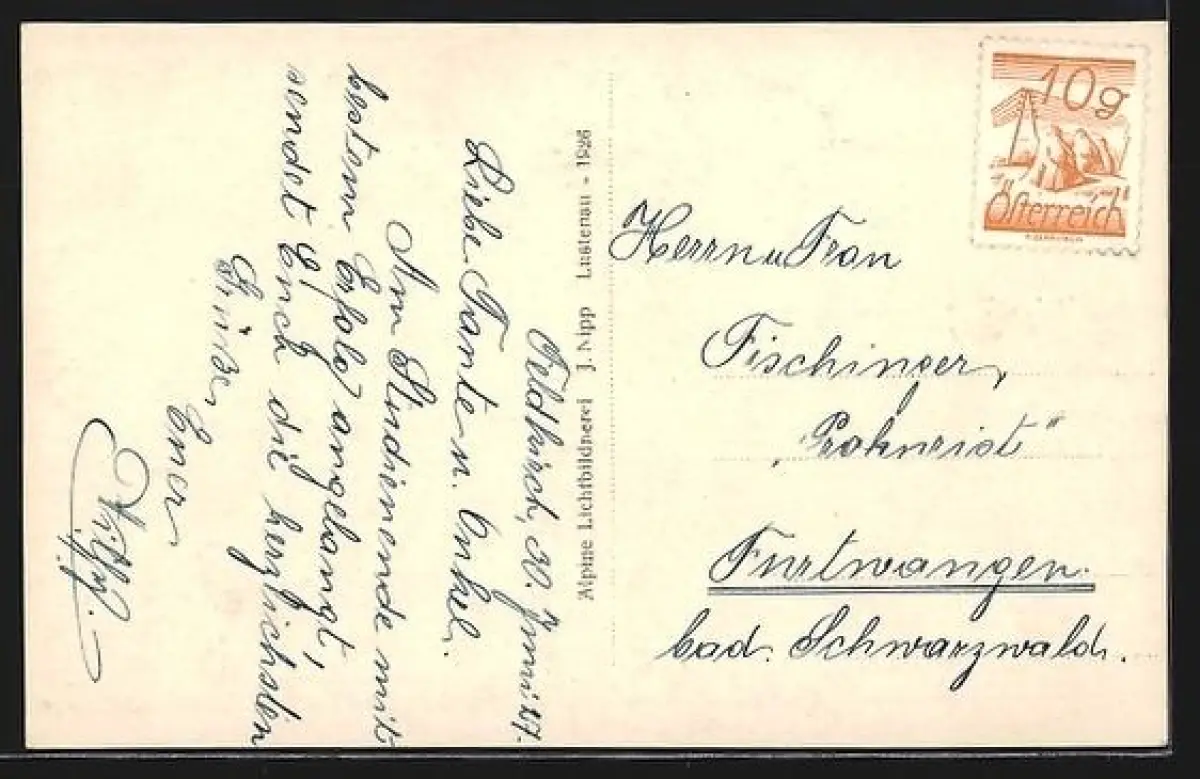 Feldkirch, 30. Juni 27.
Liebe Tante u. Onkel.
Am Studienende mit
bestem Erfolg angelangt,
sendet Euch die herzlichsten
Grüße, Euer
Alpine Lichtbildnerei J. Nipp Lustenau - 1926
10g
Österreich
Herrn u Frau
Fischinger,
„Prokurist“
Furtwangen.
bad. Schwarzwald.